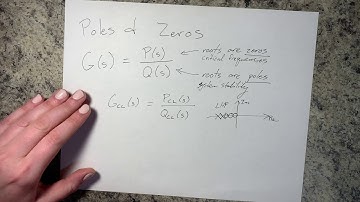 Poles & Zeros
G(s) = P(s) / Q(s)
roots are zeros
critical frequencies
roots are poles
system stability
G_CL(s) = P_CL(s) / Q_CL(s)
LHP
Im
Re